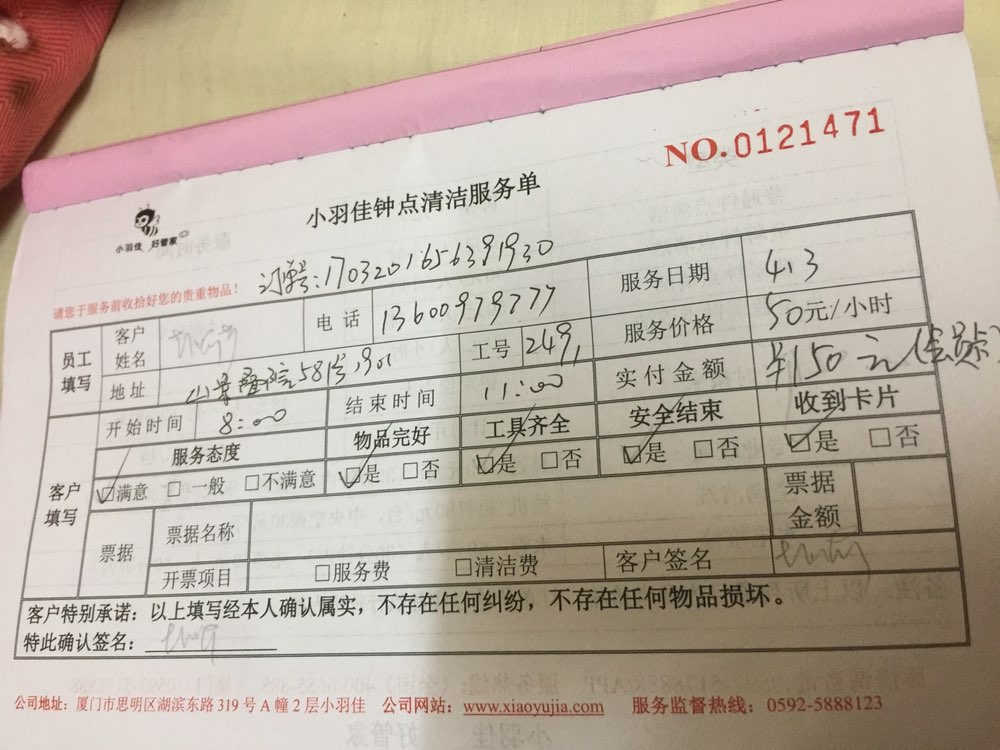 NO.0121471
小羽佳钟点清洁服务单
小羽佳 好管家
订单号:1703201656391930
请您于服务前收拾好您的贵重物品!
员工填写 客户姓名 电话 13600979277 服务日期 4.3
地址 58号901 工号 2491 服务价格 50元/小时
开始时间 8:00 结束时间 11:00 实付金额 ¥150元(会员)
客户填写 服务态度 物品完好 工具齐全 安全结束 收到卡片
☑满意 □一般 □不满意 ☑是 □否 ☑是 □否 ☑是 □否 ☑是 □否
票据 票据名称 票据金额
开票项目 □服务费 □清洁费 客户签名
客户特别承诺:以上填写经本人确认属实,不存在任何纠纷,不存在任何物品损坏。
特此确认签名:
公司地址:厦门市思明区湖滨东路319号A幢2层小羽佳 公司网站:www.xiaoyujia.com 服务监督热线:0592-5888123